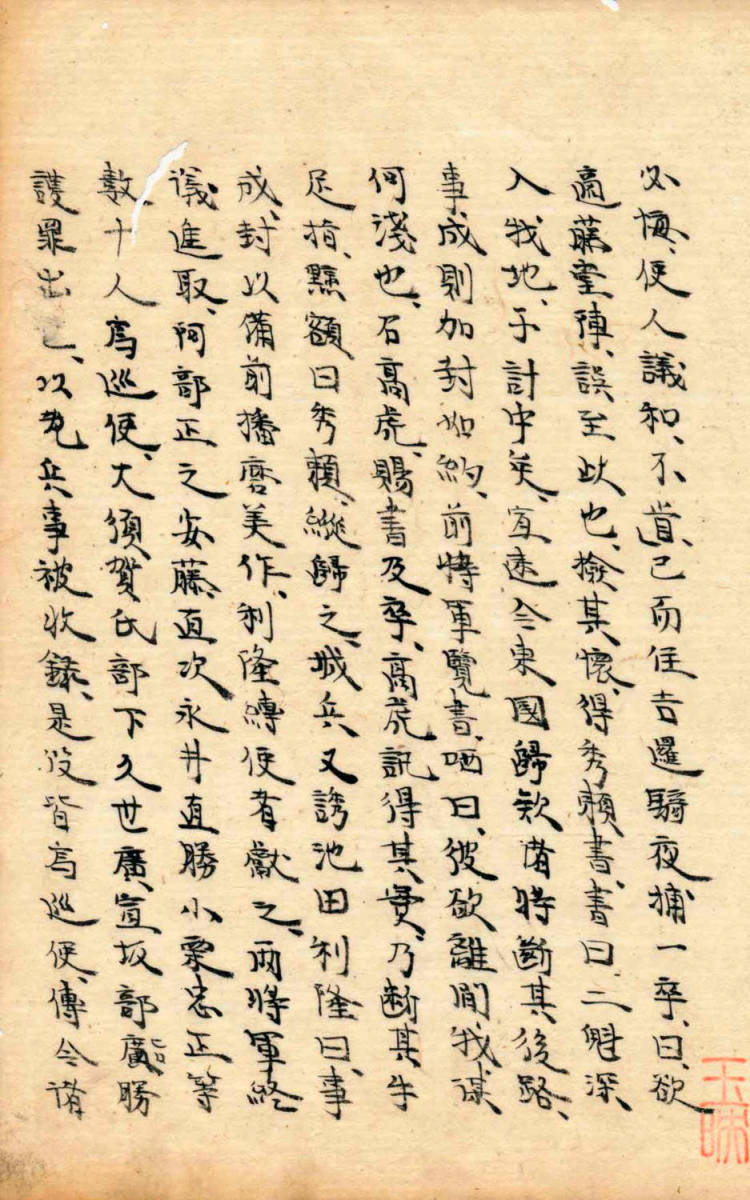 必悔、使人議和、不肯、已而住吉邏騎夜捕一卒、曰、欲
適藤堂陣、誤至此也、撿其懷、得秀賴書、書曰、二魁深
入我地、于計中矣、宜速令東國歸欵諸將斷其後路、
事成則加封如約、前將軍覽書、哂曰、彼欲離間我、謀
何淺也、召高虎、賜書及卒、高虎訊得其實、乃斷其手
足指、黥額曰秀賴、縱歸之、城兵又誘池田利隆曰、事
成、封以備前播磨美作、利隆縛使者獻之、兩將軍終
議進取、阿部正之安藤直次永井直勝小栗忠正等
數十人爲巡使、大須賀氏部下久世廣宣坂部廣勝
護罪出 、以老兵事被收錄、是役皆爲巡使、傳令諸